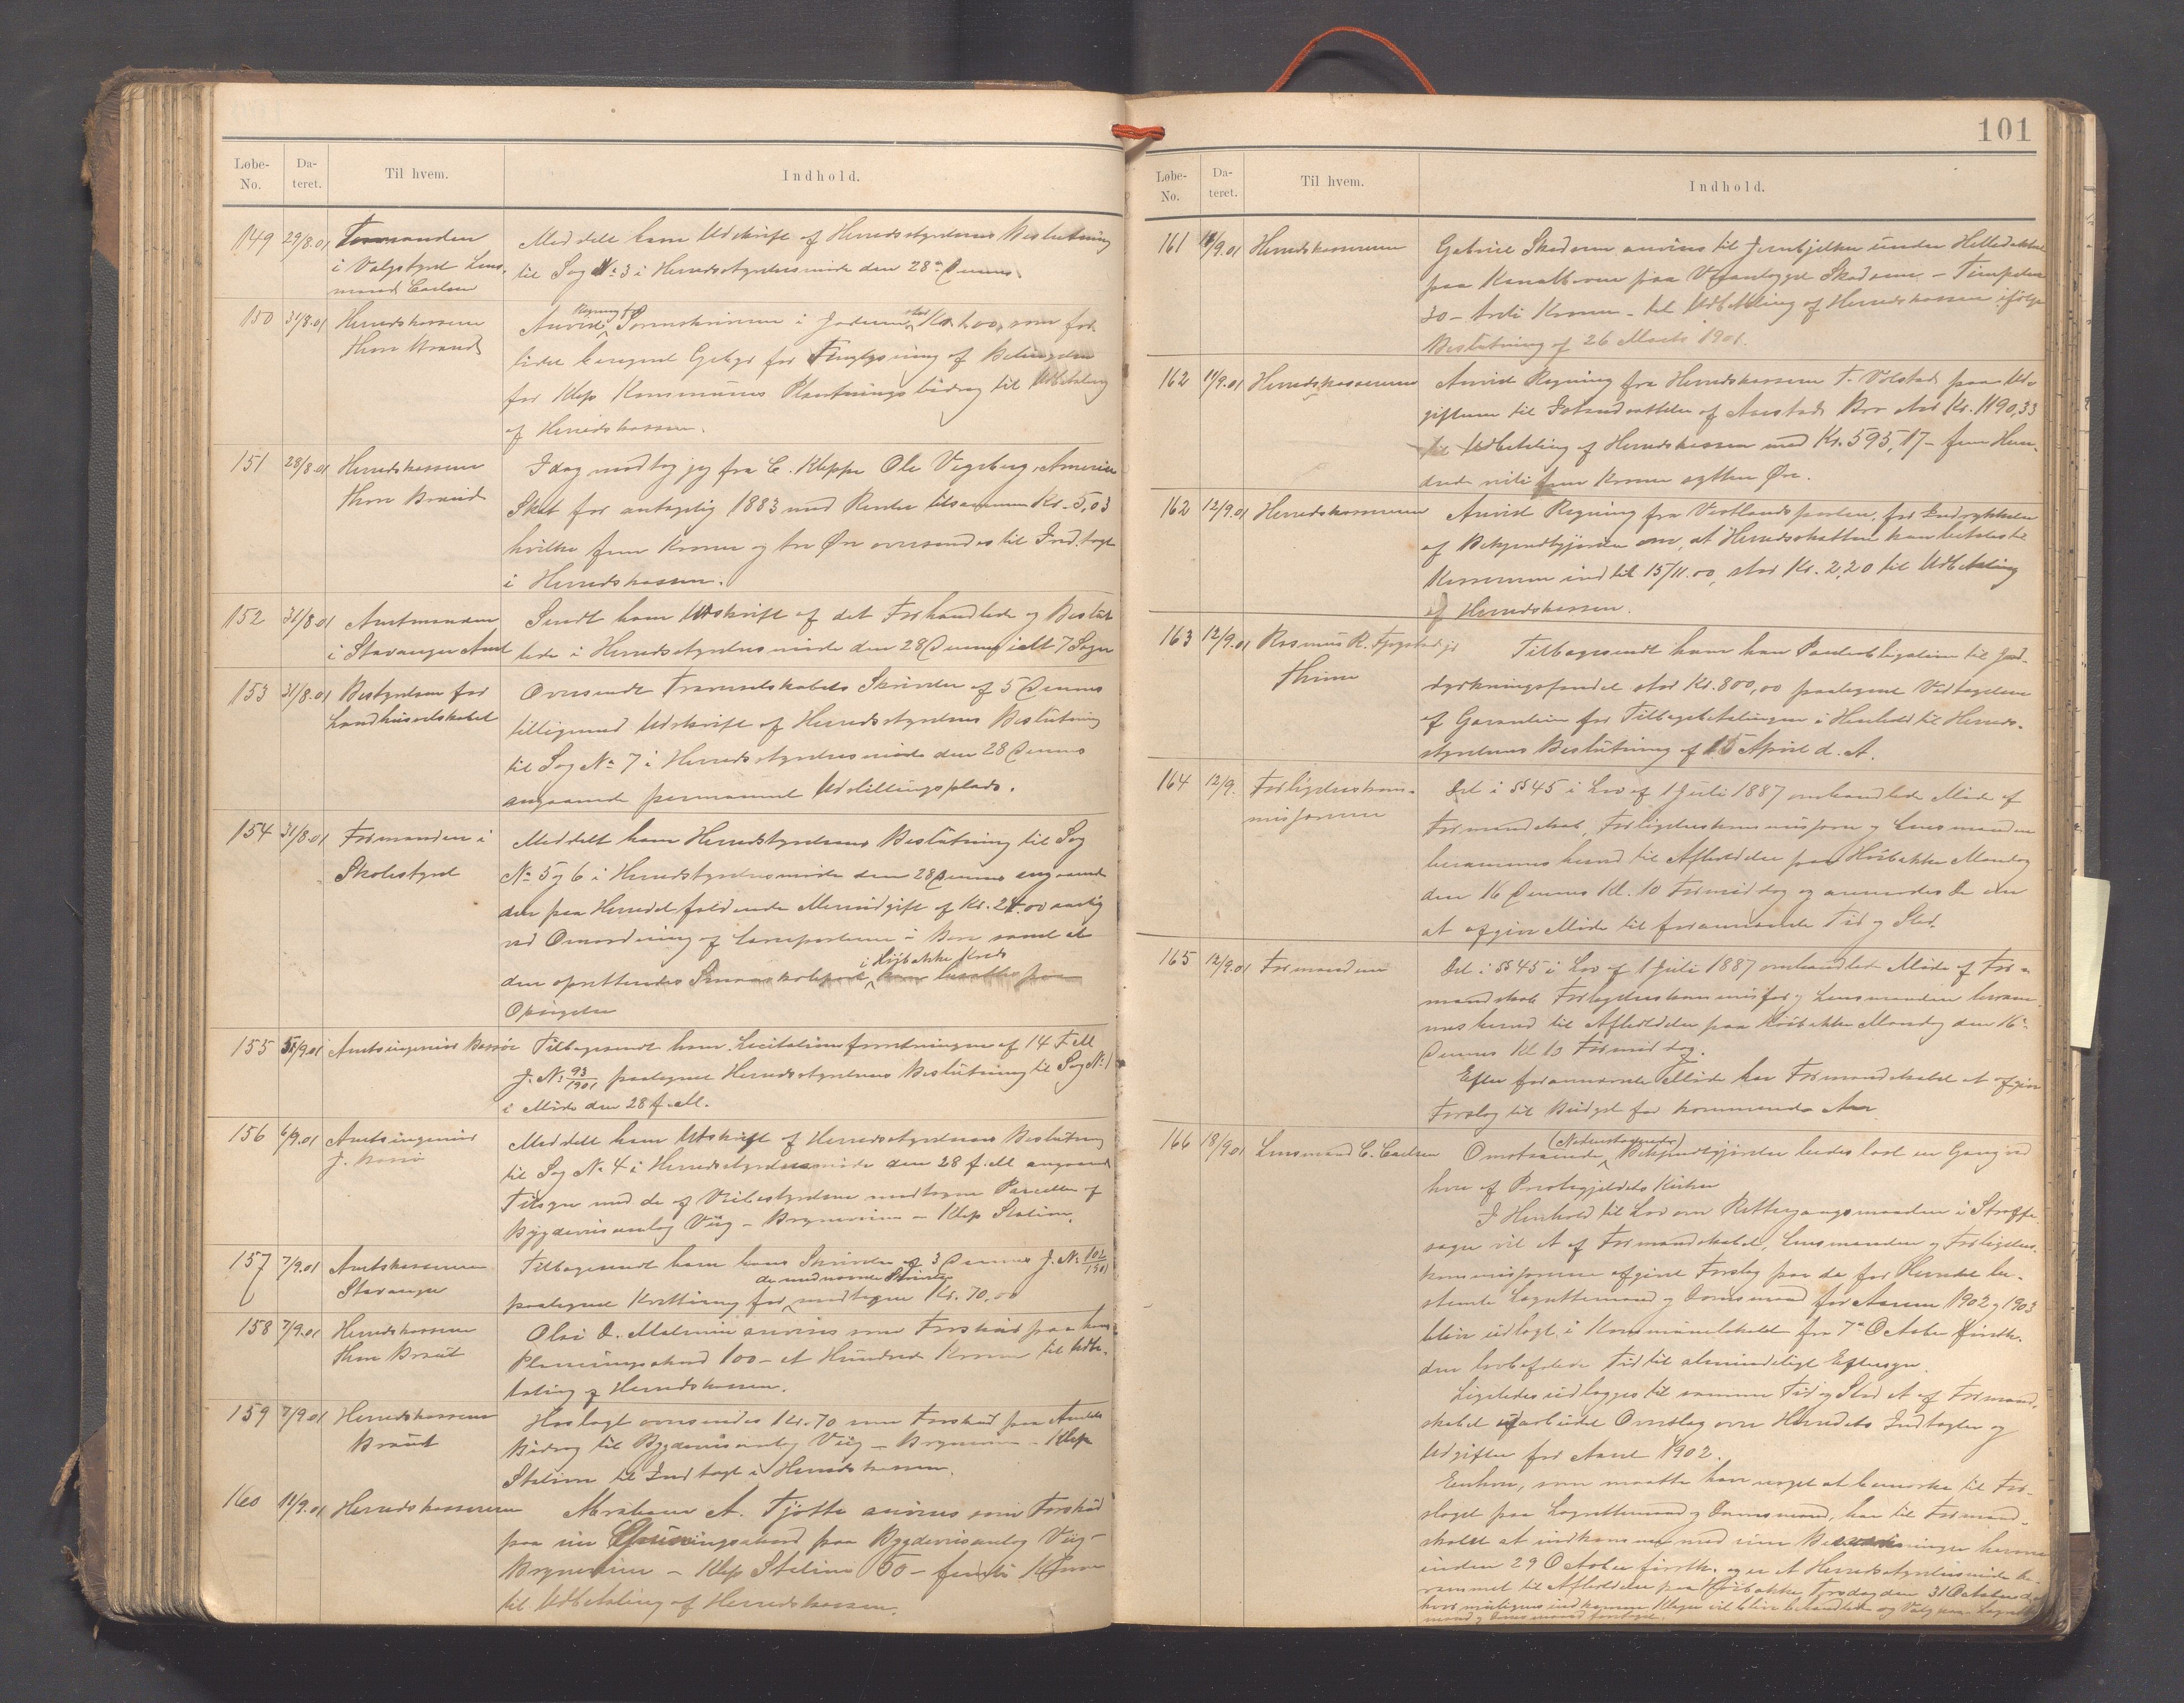 Løbe-
No.
Da-
teret.
Til hvem.
Indhold.
149 29/8.01 Formanden Meddelt ham Udskrift af Herredsstyrelsens Beslutning
i Valgstyret Lens- til Sag No 3 i Herredsstyrelsesmøde den 28de Dennes
mand Carlsen
150 31/8.01 Herredskasserer Anvist Regning fra Sorenskriveren i Jæderen stor Kr. 1.00, som for
Thore Braut lidet beregnet Gebyr for Thinglysning af Betingelse
for Klep Kommunes Plantningsbidrag til Udbetaling
af Herredskassen.
151 28/8.01 Herredskasserer I dag modtog jeg fra C. Kleppe Ole Amerika
Thore Braut Skat for antagelig 1883 med Renter tilsammen Kr. 5,03
hvilke fem Kroner og tre Øre oversendes til Indtægt
i Herredskassen.
152 31/8.01 Amtmanden Sendt ham Udskrift af det Forhandlede og Beslut
i Stavanger Amt tede i Herredsstyrelsesmøde den 28 Dennes ialt 7 Sager
153 31/8.01 Bestyrelsen for Oversendt Skrivelse af 5 Dennes
Landhusselskabet tilligemed Udskrift af Herredsstyrelsens Beslutning
til Sag No 7 i Herredsstyrelsesmøde den 28 Dennes
angaaende permanent Udstillingsplads.
154 31/8.01 Formanden i Meddelt ham Herredstyrelsens Beslutning til Sag
Skolestyret No 5 og 6 i Herredstyrelsesmøde den 28 Dennes angaaende
den paa Herredet faldende Merudgift af Kr. 24.00 aarlig
ved Omordning af Lærerposterne i Bore samt at
i Høibakke Kreds
den oprettendes Smaaskolepost
Opsigelse
155 5/9.01 Amtsingeniør Bassøe Tilbagesendt ham Licitationsforretningen af 14 F. M
J. No 93/1901 paategnet Herredsstyrelsens Beslutning til Sag No 1
i Møde den 28 f. M.
156 6/9.01 Amtsingeniør Meddelt ham Udskrift af Herredsstyrelsens Beslutning
J. Bassøe til Sag No 4 i Herredsstyrelsesmøde den 28 f. M angaaende
Tilsyn med de af Veibestyrelsen modtagne Parceller af
Bygdeveisanlæg Viig - Brynesveien - Klep Station.
157 7/9.01 Amtskassereren Tilbagesendt ham hans Skrivelse af 3 Dennes J. No 102/1901
de mednævnte Skrivelse
Stavanger paategnet Kvittering for modtagne Kr. 70.00
158 7/9.01 Herredskasserer Olai O. anvises som Forskud paa hans
Thore Braut Planeringsakord 100 - et Hundrede Kroner til Udbe-
taling af Herredskassen.
159 7/9.01 Herredskasserer Hoslagt oversendes Kr. 70 som Forskud paa Amtets
Braut Bidrag til Bygdeveisanlæg Viig - Brynesveien - Klep
Station til Indtægt i Herredskassen.
160 11/9.01 Herredskassereren Abraham A. Tjøtta anvises som Forskud
paa sin Planeringsakord paa Bygdeveisanlæg Viig -
Brynesveien - Klep Station 50 - femti Kroner
til Udbetaling af Herredskassen.
101
Løbe-
No.
Da-
teret.
Til hvem.
Indhold.
161 11/9.01 Herredskassereren Gabriel Skadsem anvises til Jernbjelker under
paa Kanalbroen paa Veianlægget Skadsem -
30 - treti Kroner - til Udbetaling af Herredskassen ifølge
Beslutning af 26 Marts 1901.
162 11/9.01 Herredskassereren Anvist Regning fra Herredskasserer T. Volstad paa Ud-
gifterne til Istandsættelse af Bro stor Kr. 1190,33
til Udbetaling af Herredskassen med Kr. 595,17 - fem Hun-
drede niti fem Kroner sytten Øre.
162 12/9.01 Herredskassereren Anvist Regning fra Vestlandsposten, for Indrykkelse
af Bekjendtgjørelse om, at Herredsskatten kan betales til
Kassereren indtil 15/11.00, stor Kr. 2,20 til Udbetaling
af Herredskassen.
163 12/9.01 Rasmus R. Tilbagesendt ham hans Panteobligation til Jord-
Thime dyrkningsfondet stor Kr. 800,00 paategnet Vedtagelsen
af Garantien for Tilbagebetalingen i Henhold til Herreds-
styrelsens Beslutning af 15 April d. A.
164 12/9. Forligelseskom- Det i §§ 45 i Lov af 1 Juli 1887 omhandlede Møde af
missionen Formandskab, Forligelseskommission og Lensmanden
berammes herved til Afholdelse paa Høibakke Mandag
den 16 Dennes Kl. 10 Formiddag og anmodes De om
at afgive Møde til forannævnte Tid og Sted.
165 12/9.01 Formændene Det i §§ 45 i Lov af 1 Juli 1887 omhandlede Møde af For-
mandskab Forligelseskommission og Lensmanden beram-
mes herved til Afholdelse paa Høibakke Mandag den 16de
Dennes Kl 10 Formiddag.
Efter forannævnte Møde har Formandskabet at afgive
Forslag til Budget for kommende Aar
166 18/9.01 Lensmand C. Carlsen Omstaaende (Nedenstaaende) Bekjendtgjørelse bedes læst en Gang ved
hver af Præstegjeldets Kirker
I Henhold til Lov om Rettergangsmaaden i Straffe-
sager vil et af Formandskabet, Lensmanden og Forligelses-
kommissionen afgivet Forslag paa de for Herredet be-
stemte Lagrettemænd og Domsmænd for Aarene 1902 og 1903
blive udlagt i Kommunelokalet fra 7de October førstk.
den lovbefalede Tid til almindeligt Eftersyn.
Ligeledes udlægges til samme Tid og Sted et af Formand-
skabet udarbeidet Overslag over Herredets Indtægter og
Udgifter for Aaret 1902.
Enhver, som maatte have noget at bemærke til For-
slaget paa Lagrettemænd og Domsmænd, har til Formand-
skabet at indkomme med sine Bemærkninger herom
inden 29 October førstk. og er et Herredsstyrelsesmøde be-
rammet til Afholdelse paa Høibakke, Torsdag den 31 October d. A.
hvor muligens indkomne Klager vil blive behandlede og Valg paa
mænd og Domsmænd foretaget.